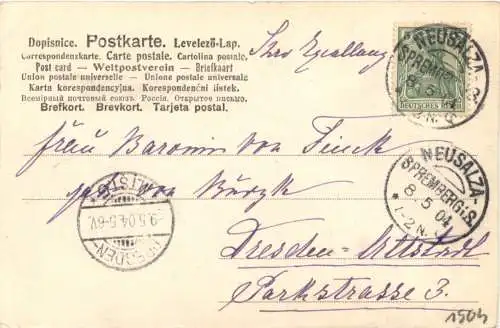 Dopisnice. Postkarte. Levelező-Lap.
Correspondenzkarte. Carte postale. Cartolina postale.
Post card — Weltpostverein — Briefkaart
Union postale universelle — Unione postale universale
Karta korespondencyjna. Korespondenční lístek.
Всемірный почтовый союзъ. Россія. Открытое письмо.
Brefkort. Brevkort. Tarjeta postal.
Ihro Excellenz
DEUTSCHES REICH
NEUSALZA-
SPREMBERG i. S.
8. 5. 04
Frau Baronin von Finck
NEUSALZA-
SPREMBERG i. S.
8. 5. 04
* 1-2 N.
geb. von
DRESDEN-
ALTST.
-9.5.04.5-6V.
Dresden-Altstadt
Parkstrasse 3.
1904